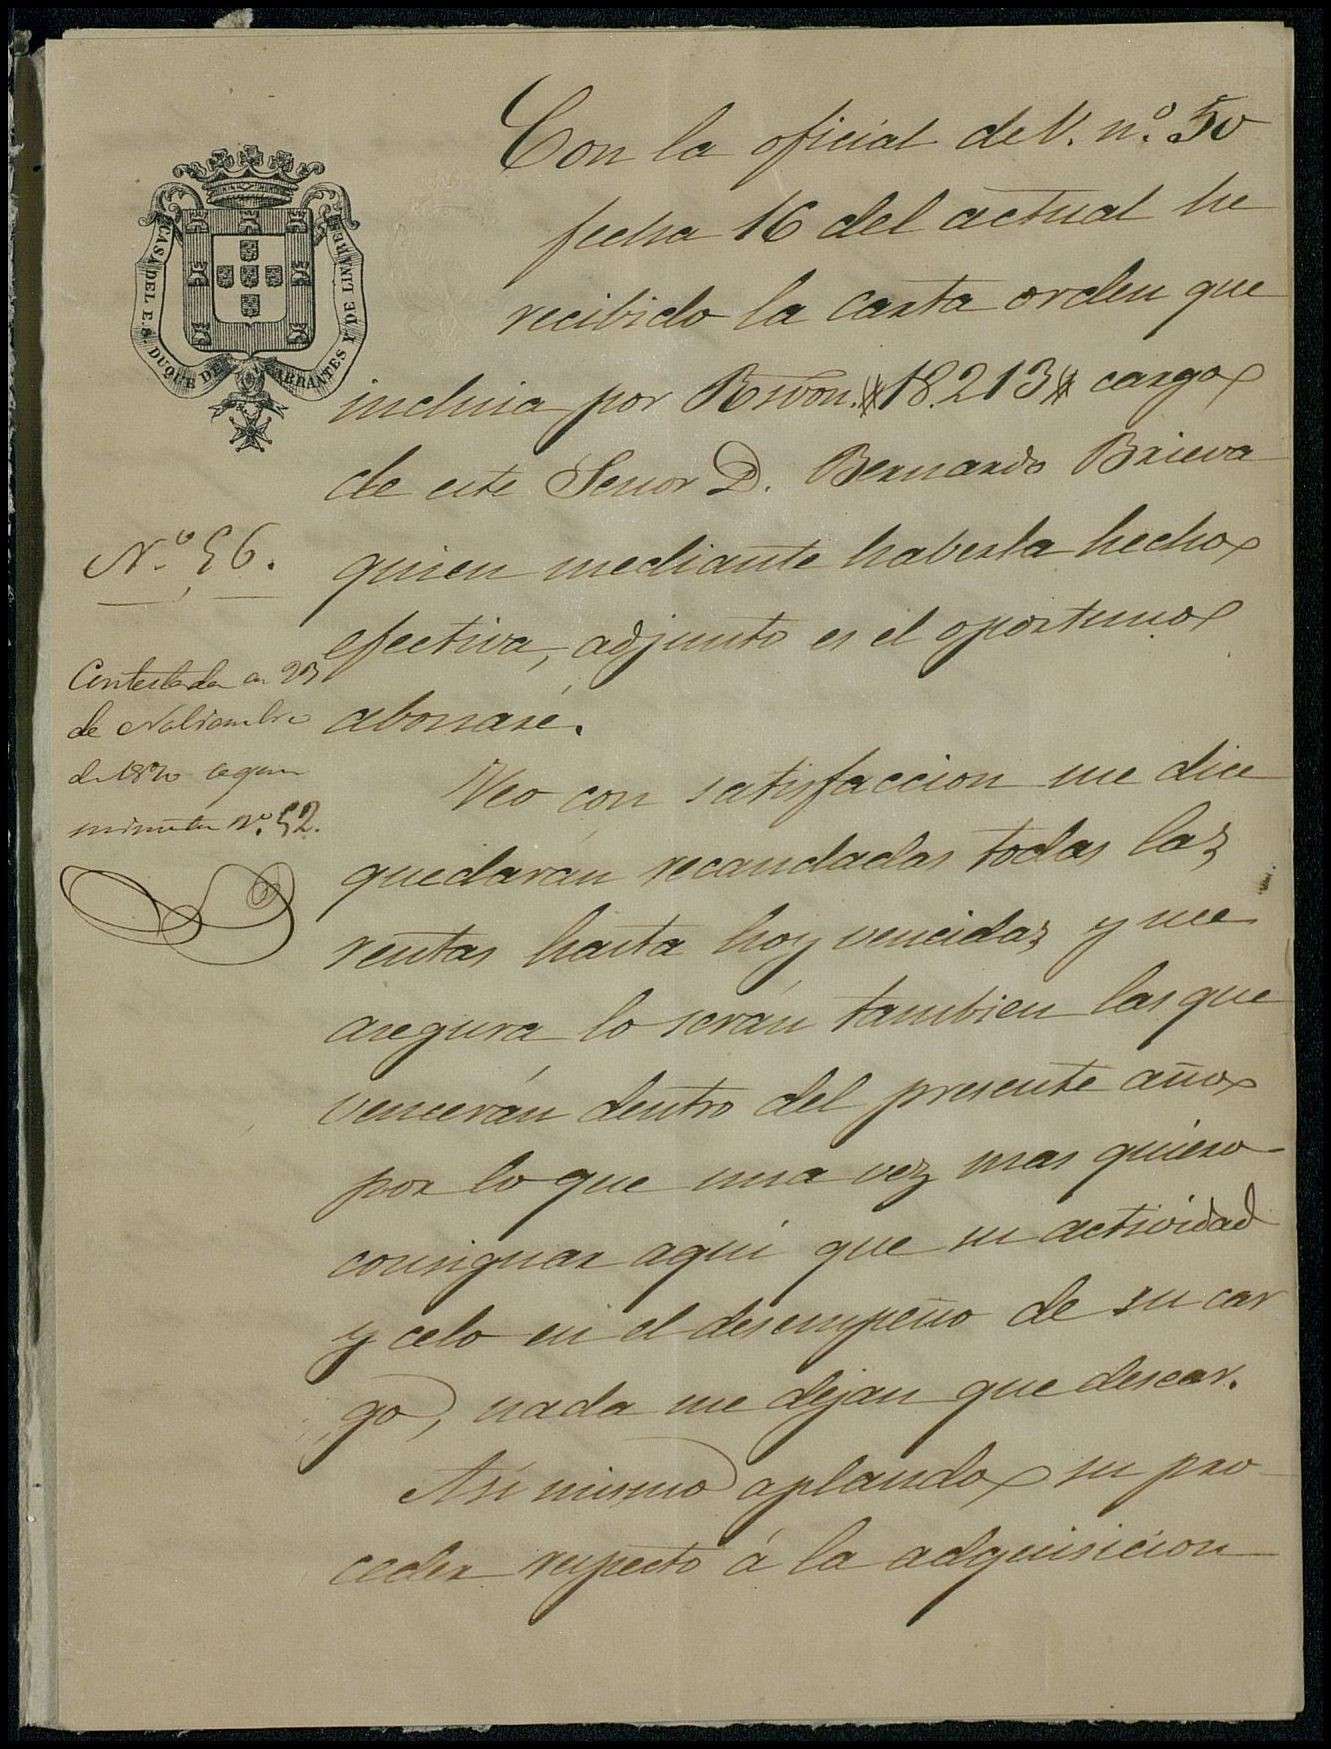 CASA DEL E. S. DUQUE DE ABRANTES Y DE LINARES
Con la oficial de V. nº. 50
fecha 16 del actual he
recibido la carta orden que
incluia por Rsvon. #18.213# cargo
de este Senor D. Bernardo Brieva
quien mediante haberla hecho
efectiva, adjunto es el oportuno
abonaré.
Veo con satisfaccion me dice
quedarán recaudadas todas las
rentas hasta hoy vencidas y me
asegura lo serán tambien las que
vencerán dentro del presente año
por lo que una vez mas quiero
consignar aqui que su actividad
y celo en el desempeño de su car
go, nada me dejan que desear.
Asi mismo aplaudo su pro
ceder respecto á la adquisicion
N.º 56.
Contestada en 23
de Noviembre
de 1870 segun
minuta nº. 52.